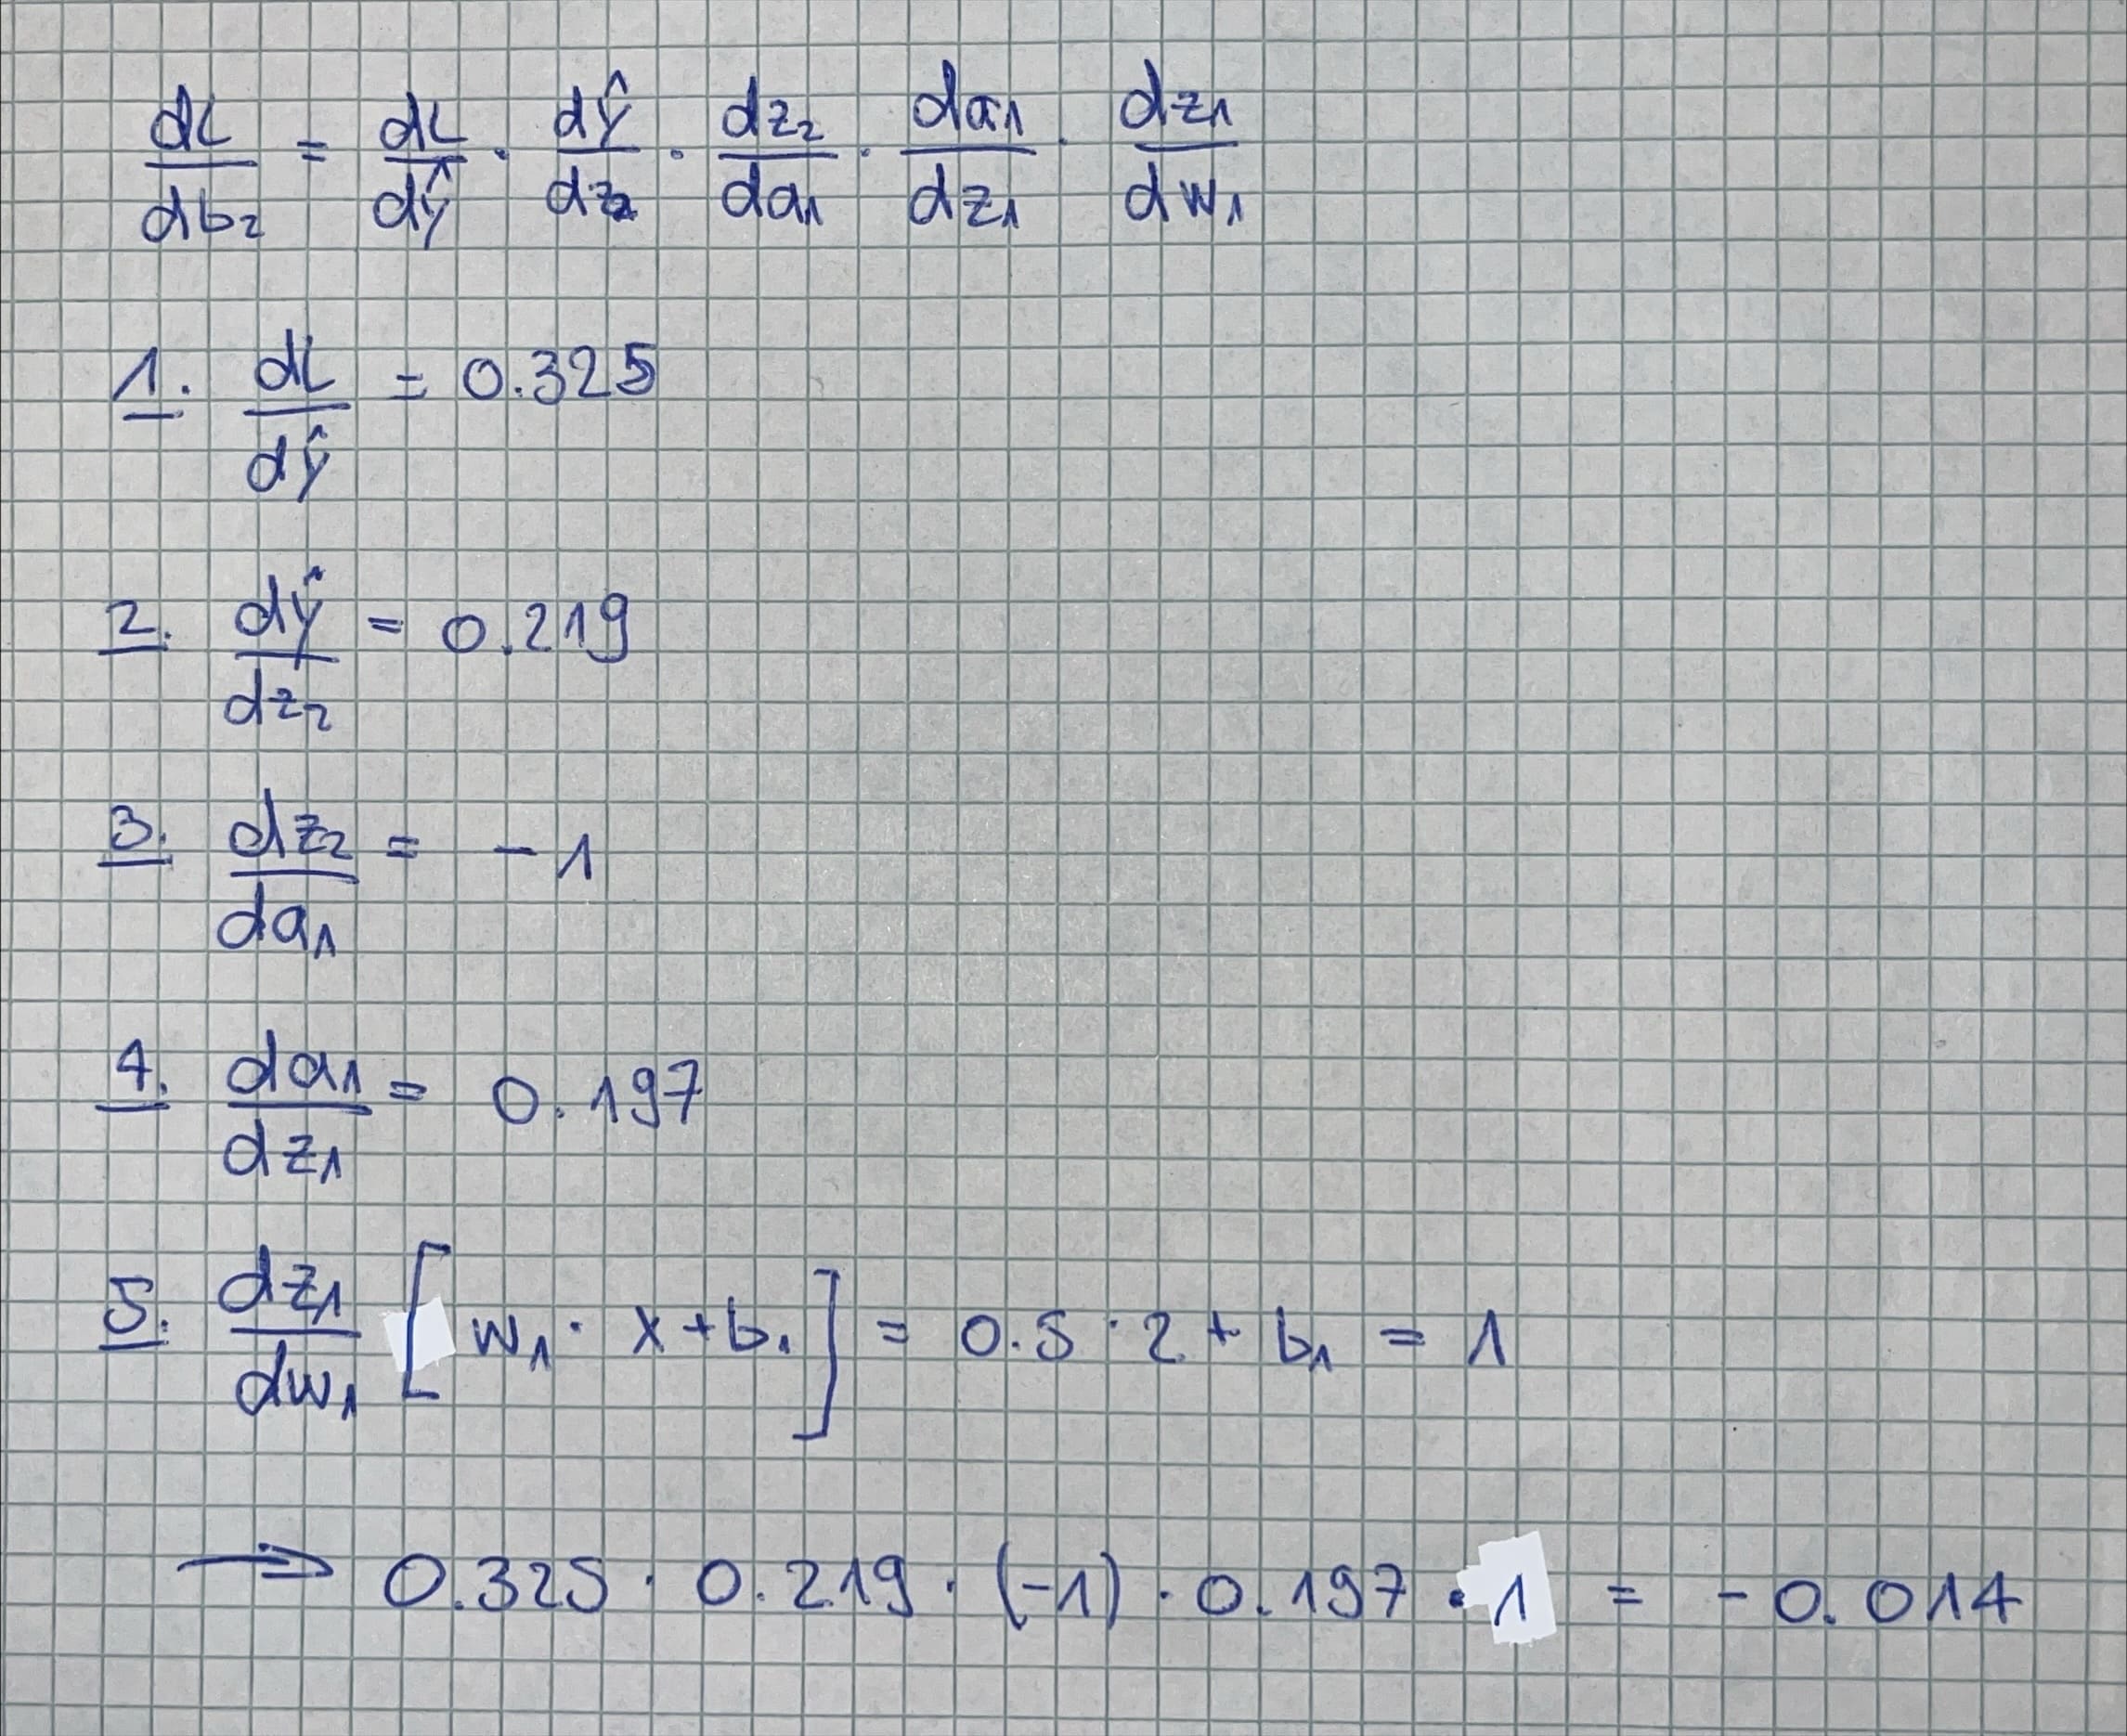 dL/db₂ = dL/dŷ · dŷ/dz₂ · dz₂/da₁ · da₁/dz₁ · dz₁/dw₁
1. dL/dŷ = 0.325
2. dŷ/dz₂ = 0.219
3. dz₂/da₁ = -1
4. da₁/dz₁ = 0.197
5. dz₁/dw₁ [w₁ · x + b₁] = 0.5 · 2 + b₁ = 1
⇒ 0.325 · 0.219 · (-1) · 0.197 · 1 = -0.014